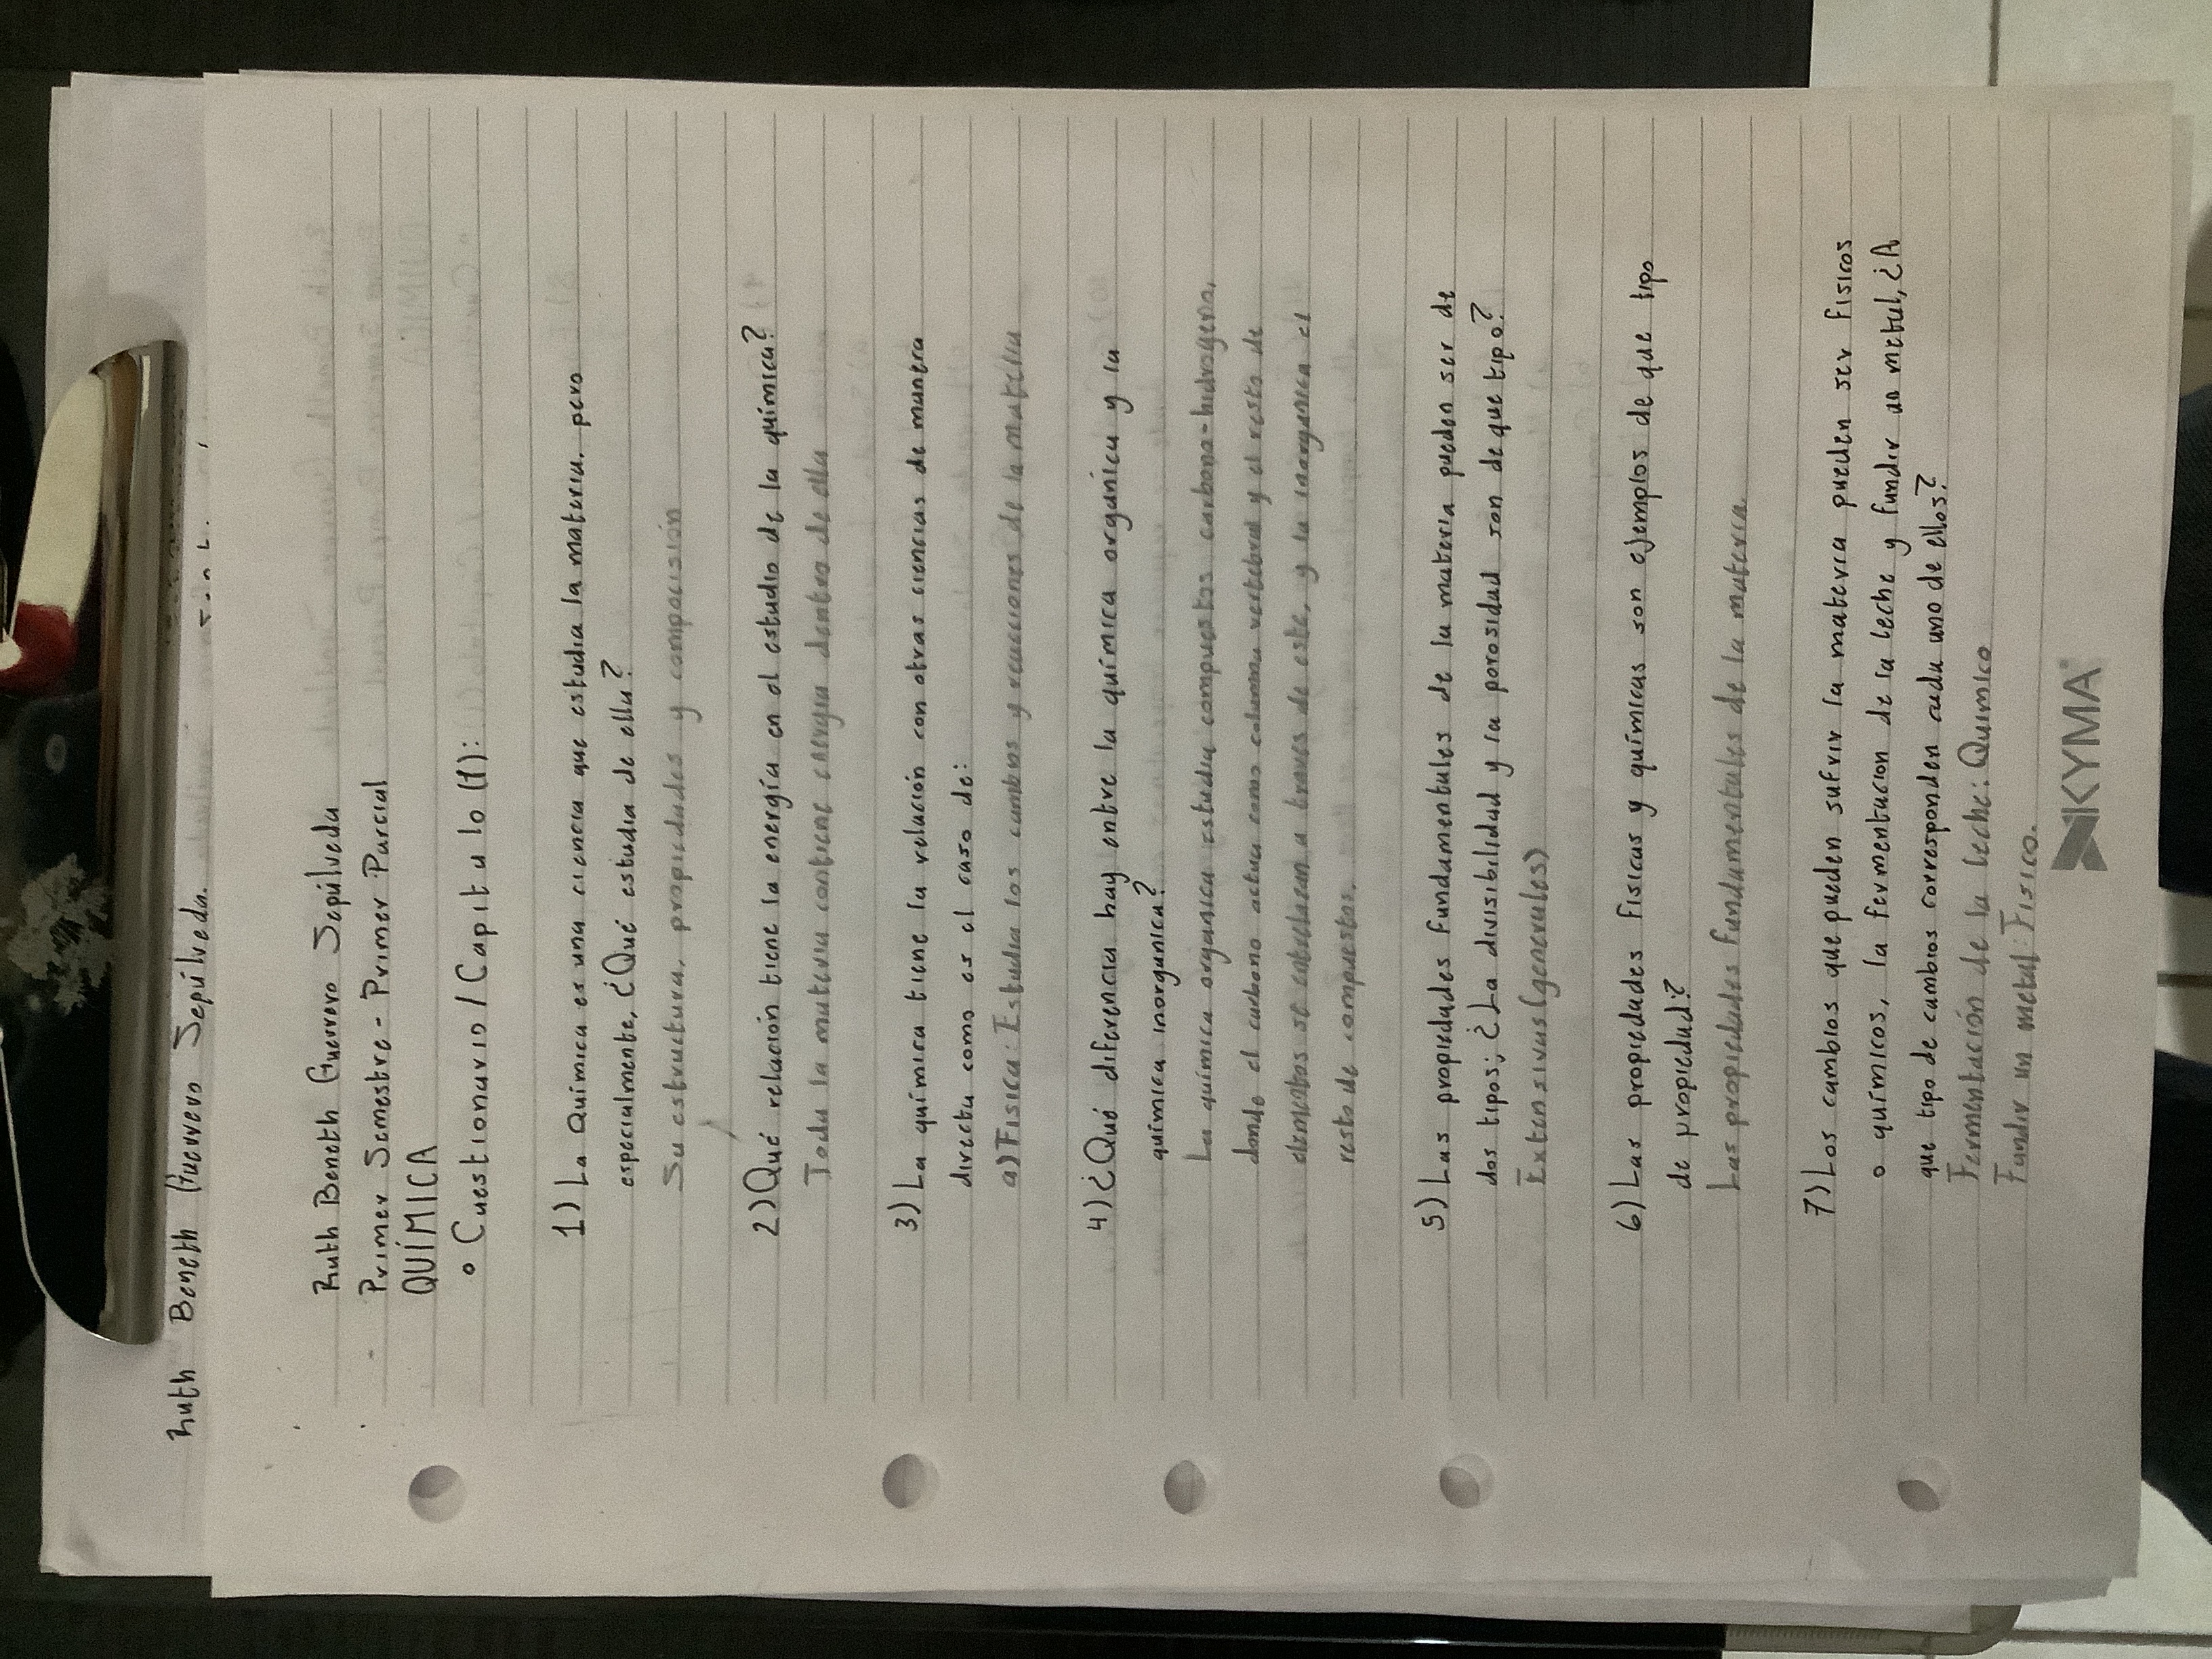 Ruth Beneth Guerrero Sepúlveda.
Ruth Beneth Guerrero Sepúlveda
Primer Semestre - Primer Parcial
QUÍMICA
° Cuestionario / Capitulo (1):
1) La Química es una ciencia que estudia la materia, pero
especialmente, ¿Qué estudia de ella?
Su estructura, propiedades y composición
2) Qué relación tiene la energía en el estudio de la química?
Toda la materia contiene energía dentro de ella
3) La química tiene la relación con otras ciencias de manera
directa como es el caso de:
a) Física: Estudia los cambios y reacciones de la materia
4) ¿Qué diferencia hay entre la química orgánica y la
química inorganica?
La química organica estudia compuestos carbono-hidrogeno,
donde el carbono actua como columna vertebral y el resto de
elementos se entrelazan a traves de este, y la inorganica el
resto de compuestos.
5) Las propiedades fundamentales de la materia pueden ser de
dos tipos; ¿La divisibilidad y la porosidad son de que tipo?
Extensivas (generales)
6) Las propiedades físicas y químicas son ejemplos de que tipo
de propiedad?
Las propiedades fundamentales de la materia.
7) Los cambios que pueden sufrir la materia pueden ser físicos
o químicos, la fermentacion de la leche y fundir un metal, ¿A
que tipo de cambios corresponden cada uno de ellos?
Fermentación de la leche: Químico
Fundir un metal: Físico.
KYMA